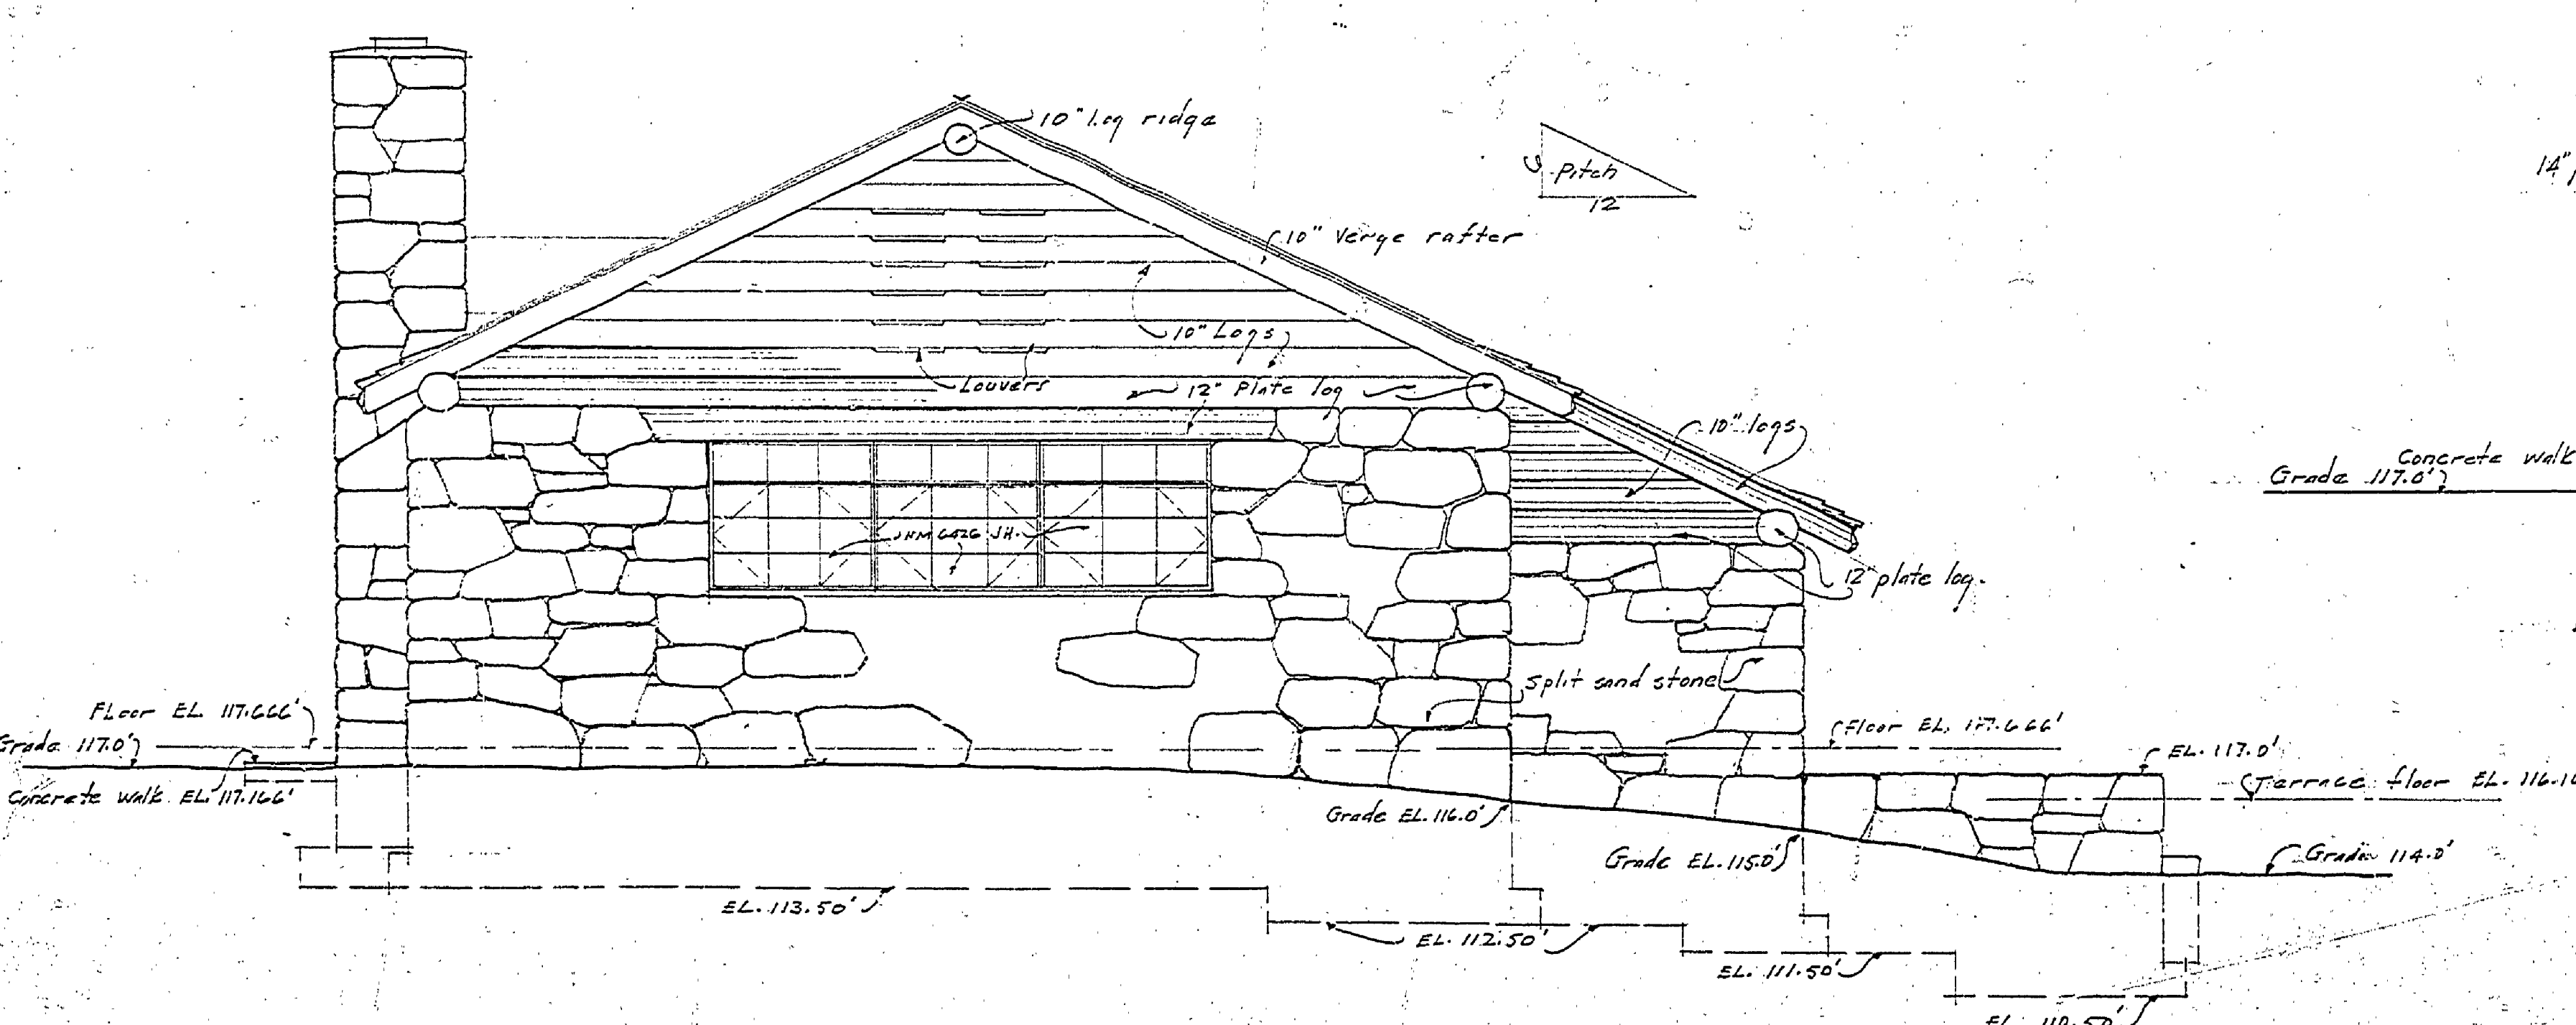 10" Log ridge
Pitch
12
14"
10" Verge rafter
10" Logs
Louvers
12" Plate log
10" logs
Concrete walk
Grade 117.0'
12 plate log.
Split sand stone
Floor EL. 117.666'
Grade 117.0'
Concrete walk EL. 117.166'
Floor EL. 117.666'
EL. 117.0'
Terrace floor EL. 116.16
Grade EL. 116.0'
Grade EL. 115.0'
Grade 114.0'
EL. 113.50'
EL. 112.50'
EL. 111.50'
EL. 110.50'